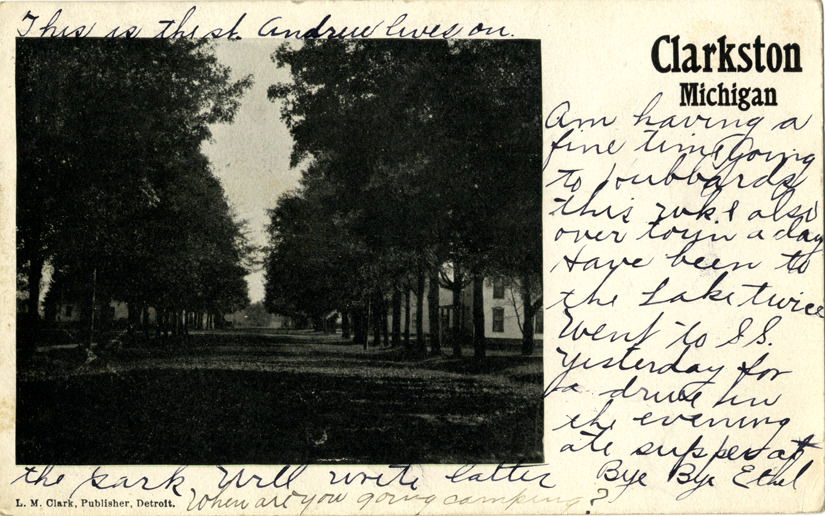 This is the st. Andrew lives on.
Clarkston
Michigan
Am having a
fine time Going
to Hubbards
this wk & also
over town a day
Have been to
the Lake twice
Went to S.S.
Yesterday for
a drive in
the evening
ate supper at
the park Will write latter Bye Bye Ethel
When are you going camping?
L. M. Clark, Publisher, Detroit.